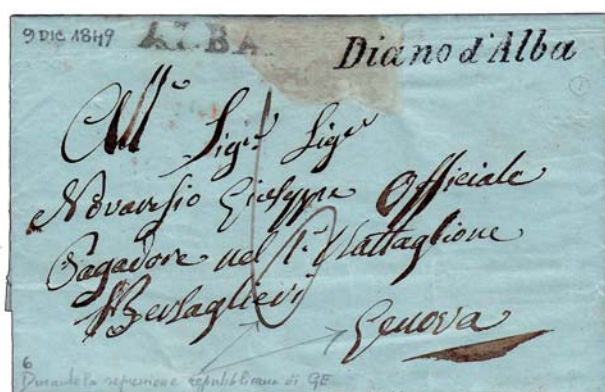 9 DIC 1849 ALBA Diano d'Alba
All' Sigr. Sigr
Novaresio Giuseppe Officiale
Pagadore nel 1° Battaglione
Bersaglieri
Genova
6
Durante la repressione repubblicana di GE